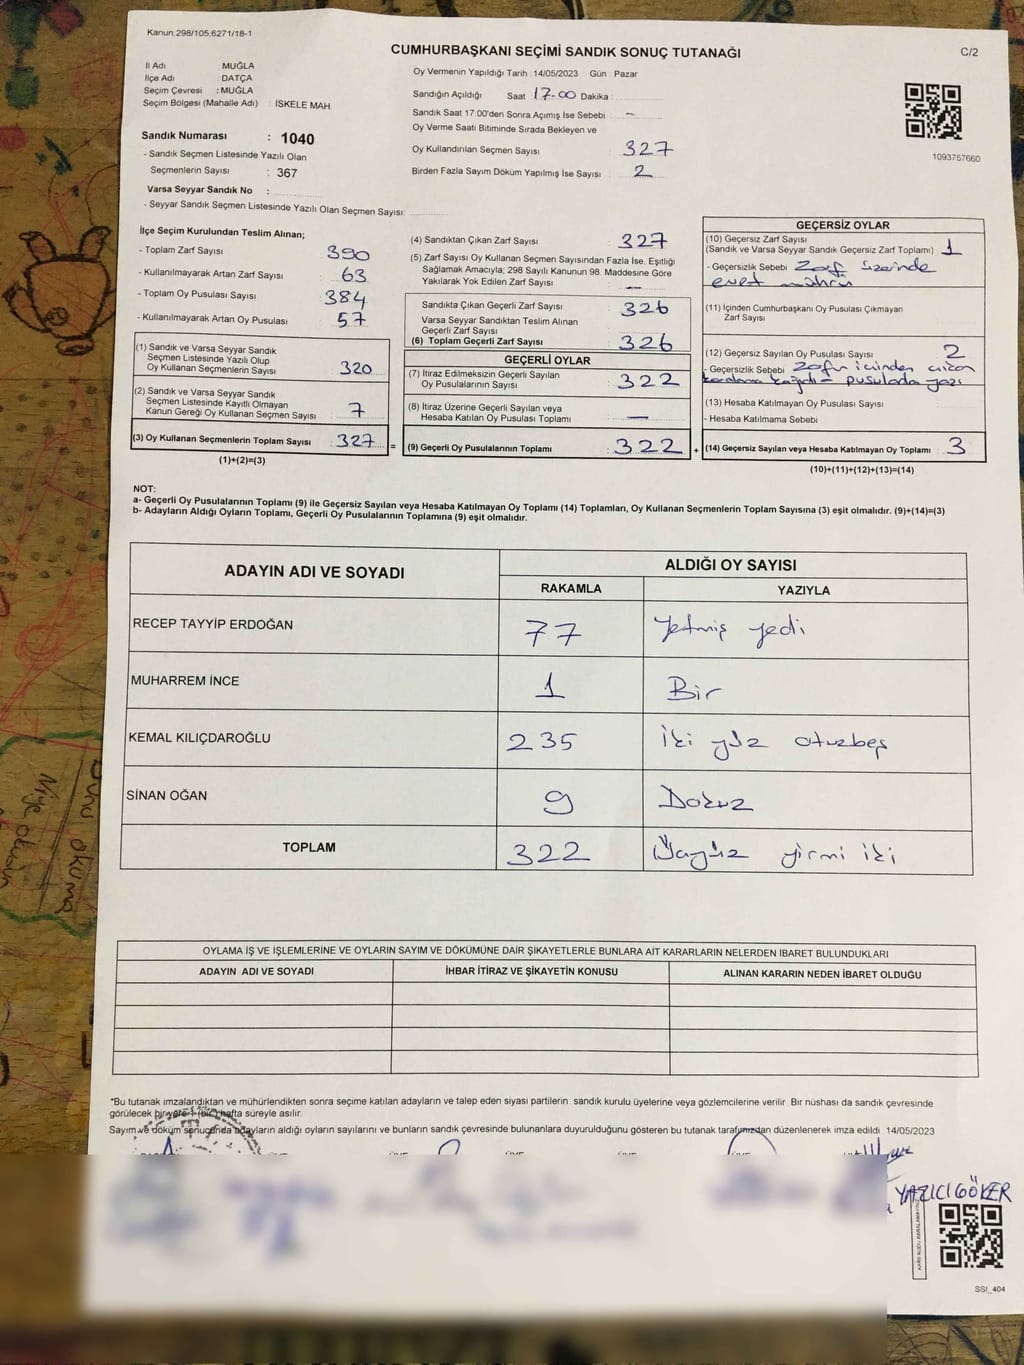 Kanun,298/105,6271/18-1
CUMHURBAŞKANI SEÇİMİ SANDIK SONUÇ TUTANAĞI
C/2
İl Adı : MUĞLA
İlçe Adı : DATÇA
Seçim Çevresi : MUĞLA
Seçim Bölgesi (Mahalle Adı) : İSKELE MAH.
Oy Vermenin Yapıldığı Tarih : 14/05/2023 Gün : Pazar
Sandığın Açıldığı Saat 17.00 Dakika :
Sandık Saat 17:00'den Sonra Açımış İse Sebebi : -
Oy Verme Saati Bitiminde Sırada Bekleyen ve
Oy Kullandırılan Seçmen Sayısı : 327
Birden Fazla Sayım Döküm Yapılmış İse Sayısı : 2
1093757660
Sandık Numarası : 1040
- Sandık Seçmen Listesinde Yazılı Olan
Seçmenlerin Sayısı : 367
Varsa Seyyar Sandık No :
- Seyyar Sandık Seçmen Listesinde Yazılı Olan Seçmen Sayısı:
İlçe Seçim Kurulundan Teslim Alınan;
- Toplam Zarf Sayısı : 390
- Kullanılmayarak Artan Zarf Sayısı : 63
- Toplam Oy Pusulası Sayısı : 384
- Kullanılmayarak Artan Oy Pusulası : 57
(1) Sandık ve Varsa Seyyar Sandık
Seçmen Listesinde Yazılı Olup
Oy Kullanan Seçmenlerin Sayısı : 320
(2) Sandık ve Varsa Seyyar Sandık
Seçmen Listesinde Kayıtlı Olmayan
Kanun Gereği Oy Kullanan Seçmen Sayısı : 7
(3) Oy Kullanan Seçmenlerin Toplam Sayısı : 327 =
(1)+(2)=(3)
(4) Sandıktan Çıkan Zarf Sayısı : 327
(5) Zarf Sayısı Oy Kullanan Seçmen Sayısından Fazla İse, Eşitliği
Sağlamak Amacıyla; 298 Sayılı Kanunun 98. Maddesine Göre
Yakılarak Yok Edilen Zarf Sayısı : —
Sandıkta Çıkan Geçerli Zarf Sayısı : 326
Varsa Seyyar Sandıktan Teslim Alınan
Geçerli Zarf Sayısı
(6) Toplam Geçerli Zarf Sayısı : 326
GEÇERLİ OYLAR
(7) İtiraz Edilmeksizin Geçerli Sayılan
Oy Pusulalarının Sayısı : 322
(8) İtiraz Üzerine Geçerli Sayılan veya
Hesaba Katılan Oy Pusulası Toplamı : —
(9) Geçerli Oy Pusulalarının Toplamı : 322 +
GEÇERSİZ OYLAR
(10) Geçersiz Zarf Sayısı
(Sandık ve Varsa Seyyar Sandık Geçersiz Zarf Toplamı) : 1
- Geçersizlik Sebebi : Zarf üzerinde
evet mührü
(11) İçinden Cumhurbaşkanı Oy Pusulası Çıkmayan
Zarf Sayısı
(12) Geçersiz Sayılan Oy Pusulası Sayısı : 2
- Geçersizlik Sebebi : Zarfın içinden çıkan
karalama kağıdı - pusulada yazı
(13) Hesaba Katılmayan Oy Pusulası Sayısı :
- Hesaba Katılmama Sebebi
(14) Geçersiz Sayılan veya Hesaba Katılmayan Oy Toplamı : 3
(10)+(11)+(12)+(13)=(14)
NOT:
a- Geçerli Oy Pusulalarının Toplamı (9) ile Geçersiz Sayılan veya Hesaba Katılmayan Oy Toplamı (14) Toplamları, Oy Kullanan Seçmenlerin Toplam Sayısına (3) eşit olmalıdır. (9)+(14)=(3)
b- Adayların Aldığı Oyların Toplamı, Geçerli Oy Pusulalarının Toplamına (9) eşit olmalıdır.
ADAYIN ADI VE SOYADI
ALDIĞI OY SAYISI
RAKAMLA YAZIYLA
RECEP TAYYİP ERDOĞAN 77 Yetmiş yedi
MUHARREM İNCE 1 Bir
KEMAL KILIÇDAROĞLU 235 İki yüz otuzbeş
SİNAN OĞAN 9 Dokuz
TOPLAM 322 Üçyüz yirmi iki
OYLAMA İŞ VE İŞLEMLERİNE VE OYLARIN SAYIM VE DÖKÜMÜNE DAİR ŞİKAYETLERLE BUNLARA AİT KARARLARIN NELERDEN İBARET BULUNDUKLARI
ADAYIN ADI VE SOYADI İHBAR İTİRAZ VE ŞİKAYETİN KONUSU ALINAN KARARIN NEDEN İBARET OLDUĞU
*Bu tutanak imzalandıktan ve mühürlendikten sonra seçime katılan adayların ve talep eden siyasi partilerin sandık kurulu üyelerine veya gözlemcilerine verilir. Bir nüshası da sandık çevresinde
görülecek bir yere 1 (bir) hafta süreyle asılır.
Sayım ve döküm sonucunda adayların aldığı oyların sayılarını ve bunların sandık çevresinde bulunanlara duyurulduğunu gösteren bu tutanak tarafımızdan düzenlenerek imza edildi. 14/05/2023
YAZICIGÖKER
SSI_404